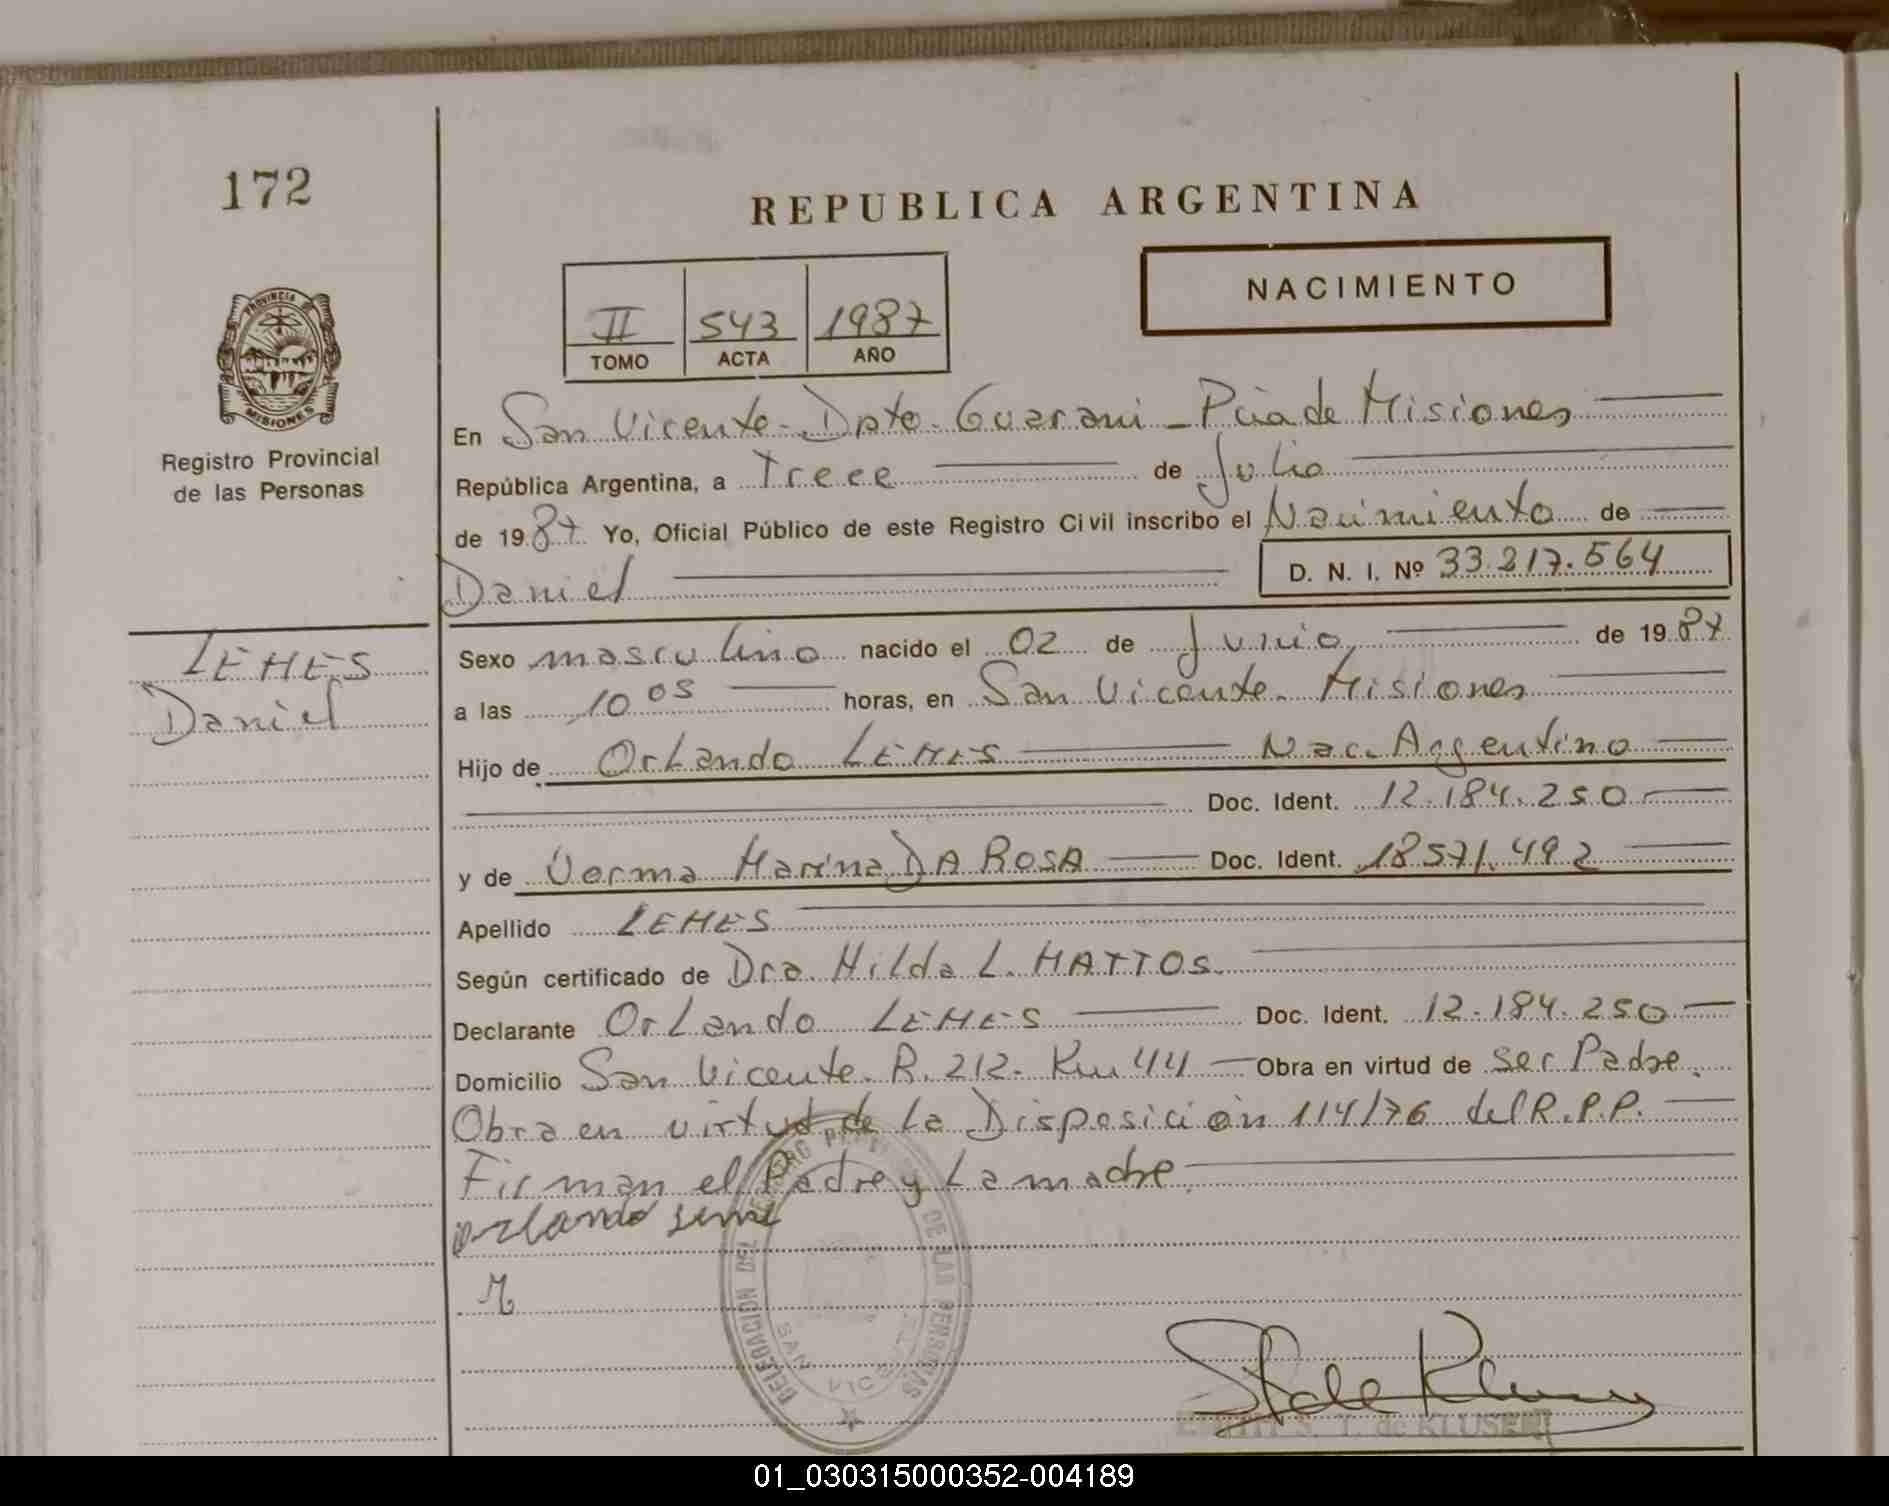 172
REPUBLICA ARGENTINA
NACIMIENTO
II 543 1987
TOMO ACTA AÑO
PROVINCIA
MISIONES
Registro Provincial
de las Personas
En San Vicente - Dpto. Guarani - Pcia de Misiones
República Argentina, a Trece de Julio
de 1987 Yo, Oficial Público de este Registro Civil inscribo el Nacimiento de
Daniel
D. N. I. Nº 33.217.564
LEMES
Daniel
Sexo masculino nacido el 02 de Junio de 1987
a las 10 05 horas, en San Vicente. Misiones
Hijo de Orlando LEMES Nac. Argentino
Doc. Ident. 12.184.250
y de Norma Marina DA ROSA Doc. Ident. 18571.492
Apellido LEMES
Según certificado de Dra. Hilda L. MATTOS.
Declarante Orlando LEMES Doc. Ident. 12.184.250
Domicilio San Vicente. R. 212. Km 44 Obra en virtud de ser Padre.
Obra en virtud de la Disposición 114/76 del R.P.P.
Firman el Padre y La madre.
orlando
DELEGACION DEL REGISTRO DE LAS PERSONAS
SAN VICENTE
S. T. de KLUSER
01_030315000352-004189